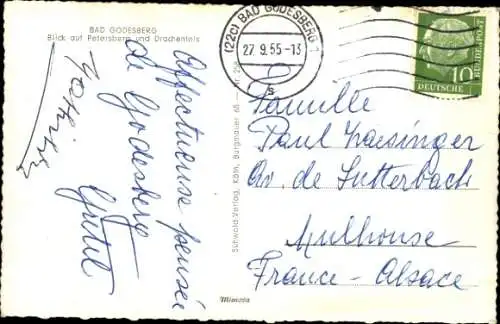 BAD GODESBERG
Blick auf Petersberg und Drachenfels
Affectueuse pensée
de Godesberg
Gretel
(22c) BAD GODESBERG 1
27.9.55-13
s
DEUTSCHE
BUNDESPOST
10
Famille
Paul
Av. de Lutterbach
Mulhouse
France-Alsace
Südwald-Verlag, Köln, Burgmauer 68
Mimosa